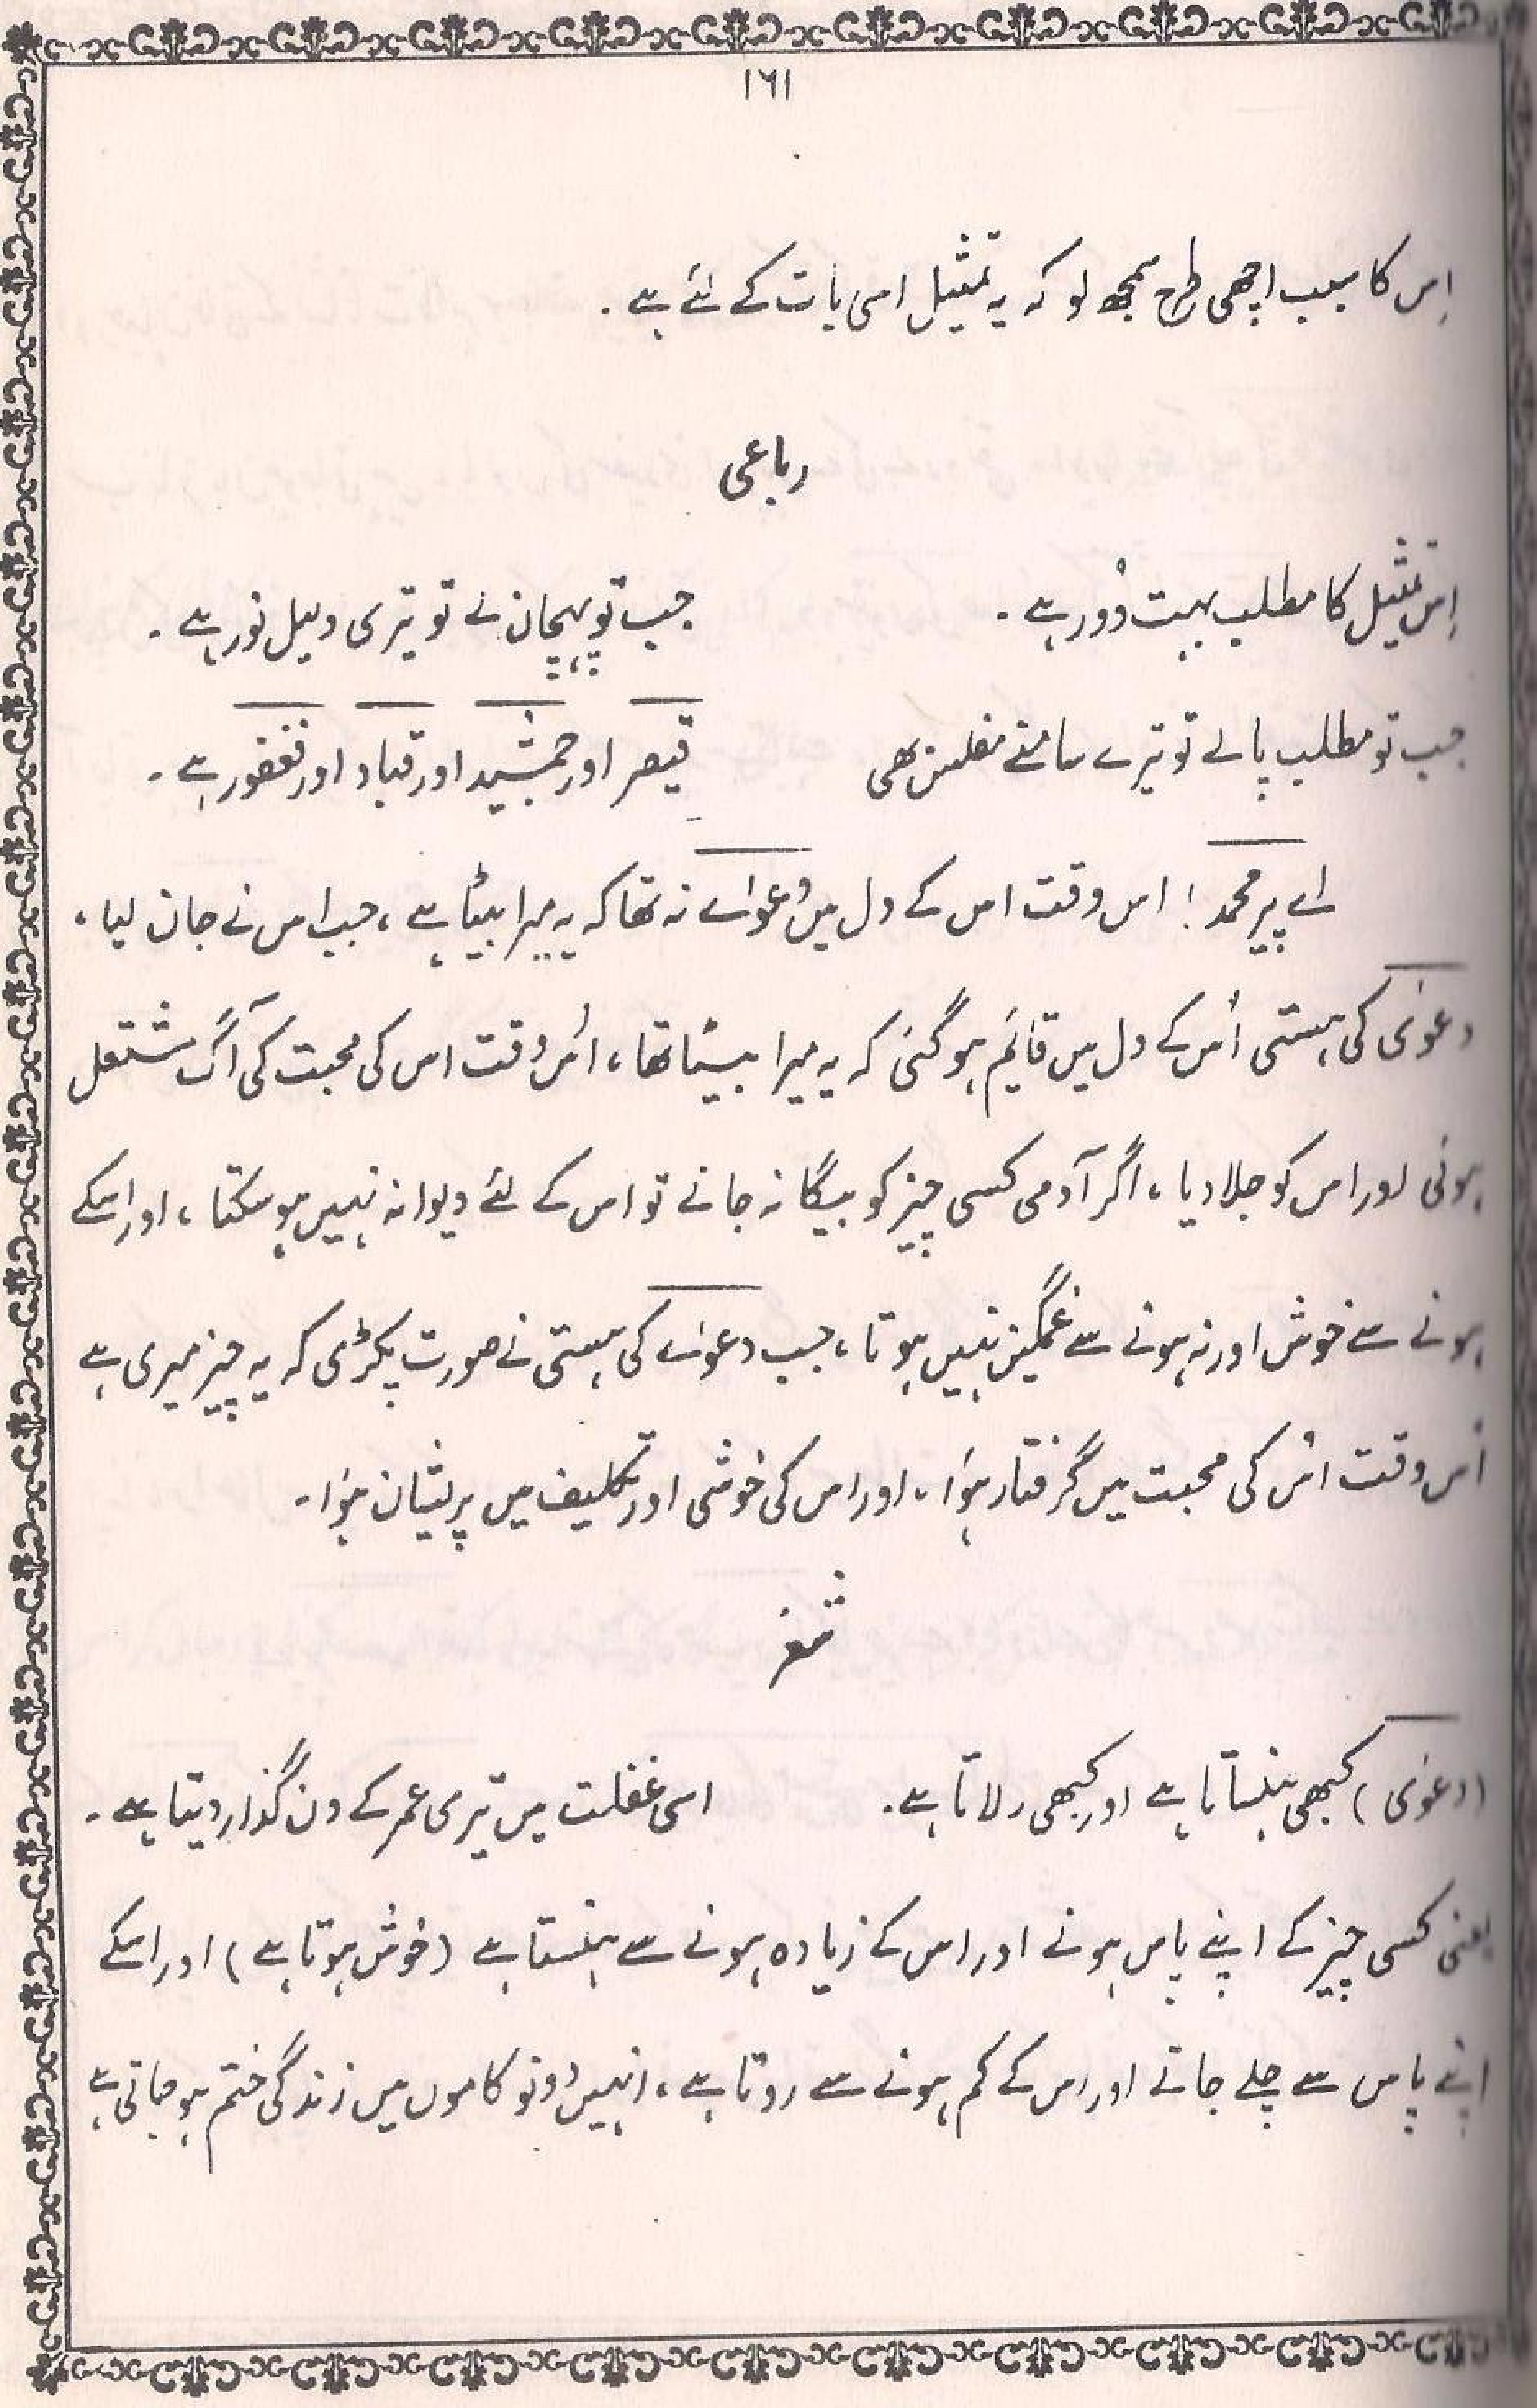 ۱۶۱
اِس کا سبب اچھی طرح سمجھ لو کہ یہ تمثیل اسی بات کے لئے ہے۔
رباعی
اِس تمثیل کا مطلب بہت دُور ہے۔ جب تو پہچان لے تو تیری دلیل نور ہے۔
جب تو مطلب پالے تو تیرے سامنے مفلس بھی قیصر اور جمشید اور قباد اور فغفور ہے۔
اے پیر محمد! اس وقت اس کے دل میں دعوٰے نہ تھا کہ یہ میرا بیٹا ہے، جب اس نے جان لیا،
دعوٰی کی ہستی اُس کے دل میں قائم ہو گئی کہ یہ میرا بیٹا تھا، اُس وقت اس کی محبت کی آگ مشتعل
ہوئی اور اس کو جلا دیا، اگر آدمی کسی چیز کو بیگانہ جانے تو اس کے لئے دیوانہ نہیں ہو سکتا، اور اسکے
ہونے سے خوش اور نہ ہونے سے غمگین نہیں ہوتا، جب دعوٰے کی ہستی نے صورت پکڑی کہ یہ چیز میری ہے
اُس وقت اُس کی محبت میں گرفتار ہوٴا، اور اس کی خوشی اور تکلیف میں پریشان ہوٴا۔
شعر
(دعوٰی) کبھی ہنساتا ہے اور کبھی رلاتا ہے۔ اسی غفلت میں تیری عمر کے دن گذار دیتا ہے۔
یعنی کسی چیز کے اپنے پاس ہونے اور اس کے زیادہ ہونے سے ہنستا ہے (خوش ہوتا ہے) اور اسکے
اپنے پاس سے چلے جانے اور اس کے کم ہونے سے روتا ہے، انہیں دونو کاموں میں زندگی ختم ہو جاتی ہے